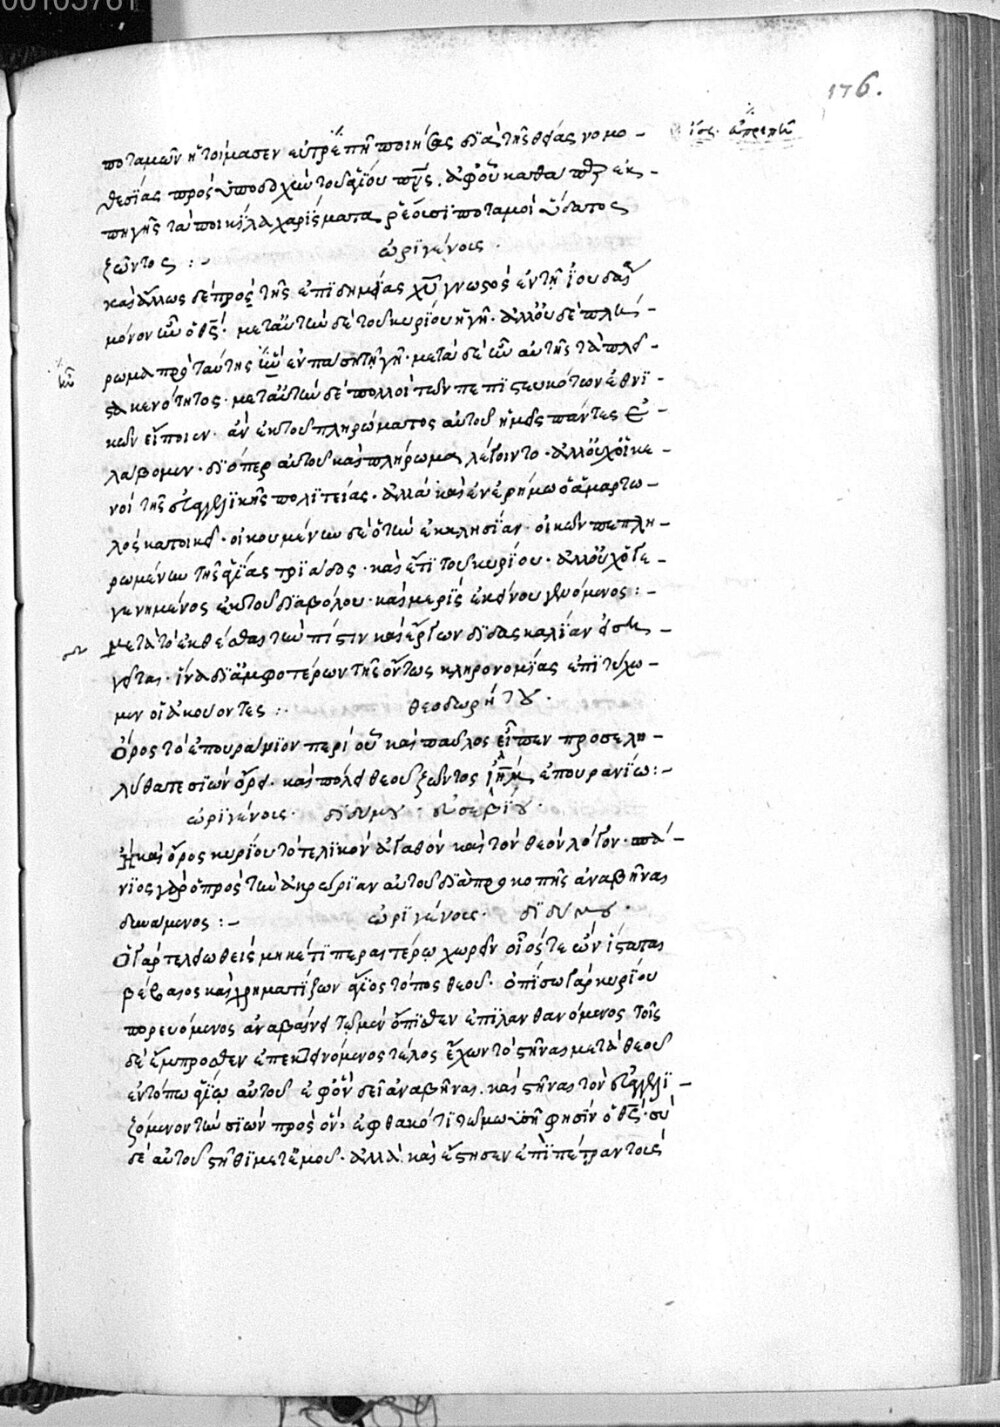 00105761
176.
ποταμῶν ἡτοίμασεν εὐπρεπῆ ποιήσας διὰ τῆς θείας νομο-
θεσίας πρὸς ὑποδοχὴν τοῦ ἁγίου πνς. ἀφ' οὗ καθάπερ ἐκ-
πηγῆς τὰ ποικίλα χαρίσματα ῥέουσι ποταμοὶ ὕδατος
ζῶντος :-
ὠριγένους.
καὶ ἄλλως δὲ πρὸς τῆς ἐπιδημίας χυ γνωστὸς ἐν τῇ ἰουδαίᾳ
μόνον ἦν ὁ θς. μετ' αὐτὴν δὲ τοῦ κυρίου ἡ γῆ. ἀλλ' οὐδὲ πλή-
ρωμα πρὸ ταύτης ἦν ἐν πάσῃ τῇ γῇ. μετὰ δὲ
κενότητος. μετ' αὐτὴν δὲ πολλοὶ τῶν πεπιστευκότων ἐθνι-
κῶν εἴποιεν. ἂν ἐκ τοῦ πληρώματος αὐτοῦ ἡμεῖς πάντες ἐ-
λάβομεν. διόπερ αὐτοῦ καὶ πλήρωμα λέγοιντο. ἀλλ' οὐχ οἱ κε-
νοὶ τῆς εὐαγγελικῆς πολιτείας. ἀλλὰ καὶ ἐν ἐρήμω ὁ ἁμαρτω-
λὸς κατοικεῖ. οἰκουμένην δὲ ὅτων ἐκκλησίαν. οἰκῶν πεπλη-
ρωμένων τῆς ἁγίας τριάδος. καὶ ἐστὶ τοῦ κυρίου. ἀλλ' οὐχ ὁ γε-
γενημένος ἐκ τοῦ διαβόλου. καὶ μερὶς ἐκείνου γενόμενος :-
μετὰ τὸ ἐκθέσθαι τὴν πίστιν καὶ ἔργων διδασκαλίαν
ἵνα δι' ἀμφοτέρων τῆς ὄντως κληρονομίας ἐπιτύχω-
μεν οἱ ἀκούοντες :.
θεοδωρήτου.
Ὄρος τὸ ἐπουράνιον περὶ οὗ καὶ παῦλος εἶπεν προσελη-
λύθατε σιὼν ὄρει. καὶ πόλει θεοῦ ζῶντος ἰλημ ἐπουρανίω :-
ὠριγένους. διδύμου. εὐσεβίου.
Ἢ καὶ ὄρος κυρίου τὸ τελικὸν ἀγαθὸν καὶ τὸν θεὸν λόγον. σπά-
νιος γὰρ ὁ πρὸς τὴν ἀκρώρειαν αὐτοῦ διὰ προκοπῆς ἀναβῆναι
δυνάμενος :-
ὠριγένους. διδύμου.
Ὁ γὰρ τελειωθεὶς μηκέτι περαιτέρω χωρεῖν οἷός τε ὢν ἵσταται
βέβαιος καὶ χρηματίζων ἅγιος τόπος θεοῦ. ὀπίσω γὰρ κυρίου
πορευόμενος ἀναβαίνει τῶν μὲν ὄπισθεν ἐπιλανθανόμενος τοῖς
δὲ ἔμπροσθεν ἐπεκτεινόμενος τέλος ἔχων τὸ στῆναι μετὰ θεοῦ
ἐν τόπω ἁγίω αὐτοῦ ἐφ' ὃν δεῖ ἀναβῆναι. καὶ στῆναι τὸν εὐαγγελι-
ζόμενον τὴν σιὼν πρὸς ὃν, ἐφθακότι τῷ μωυσῇ φησὶν ὁ θς. σὺ
δὲ αὐτοῦ στῆθι μετ' ἐμοῦ. ἀλλὰ καὶ ἔστησεν ἐπὶ πέτραν τοὺς